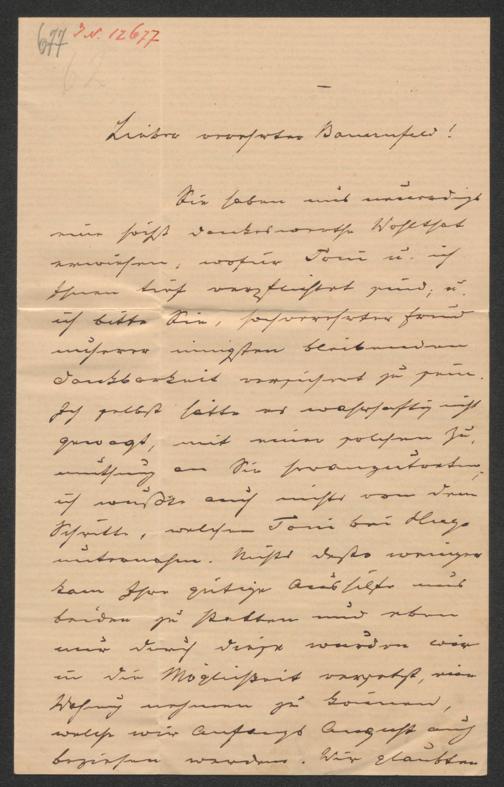 677 I.N. 12677
62
Lieber verehrter Bauernfeld!
Sie haben uns neuerdings
eine höchst dankenswerthe Wohlthat
erwiesen, wofür Toni u. ich
Ihnen tief verpflichtet sind; u.
ich bitte Sie, hochverehrter Freund
unserer innigsten bleibenden
Dankbarkeit versichert zu sein.
Ich selbst hätte es wahrhaftig nicht
gewagt, mit einer solchen Zu-
muthung an Sie heranzutreten,
ich wußte auch nichts von dem
Schritte, welchen Toni bei Hugo
unternahm. Nichts desto weniger
kam Ihre gütige Aushilfe uns
beiden zu statten und eben
nur durch diese wurden wir
in die Möglichkeit versetzt, eine
Wohnung nehmen zu können,
welche wir Anfangs August auch
beziehen werden. Wir glaubten